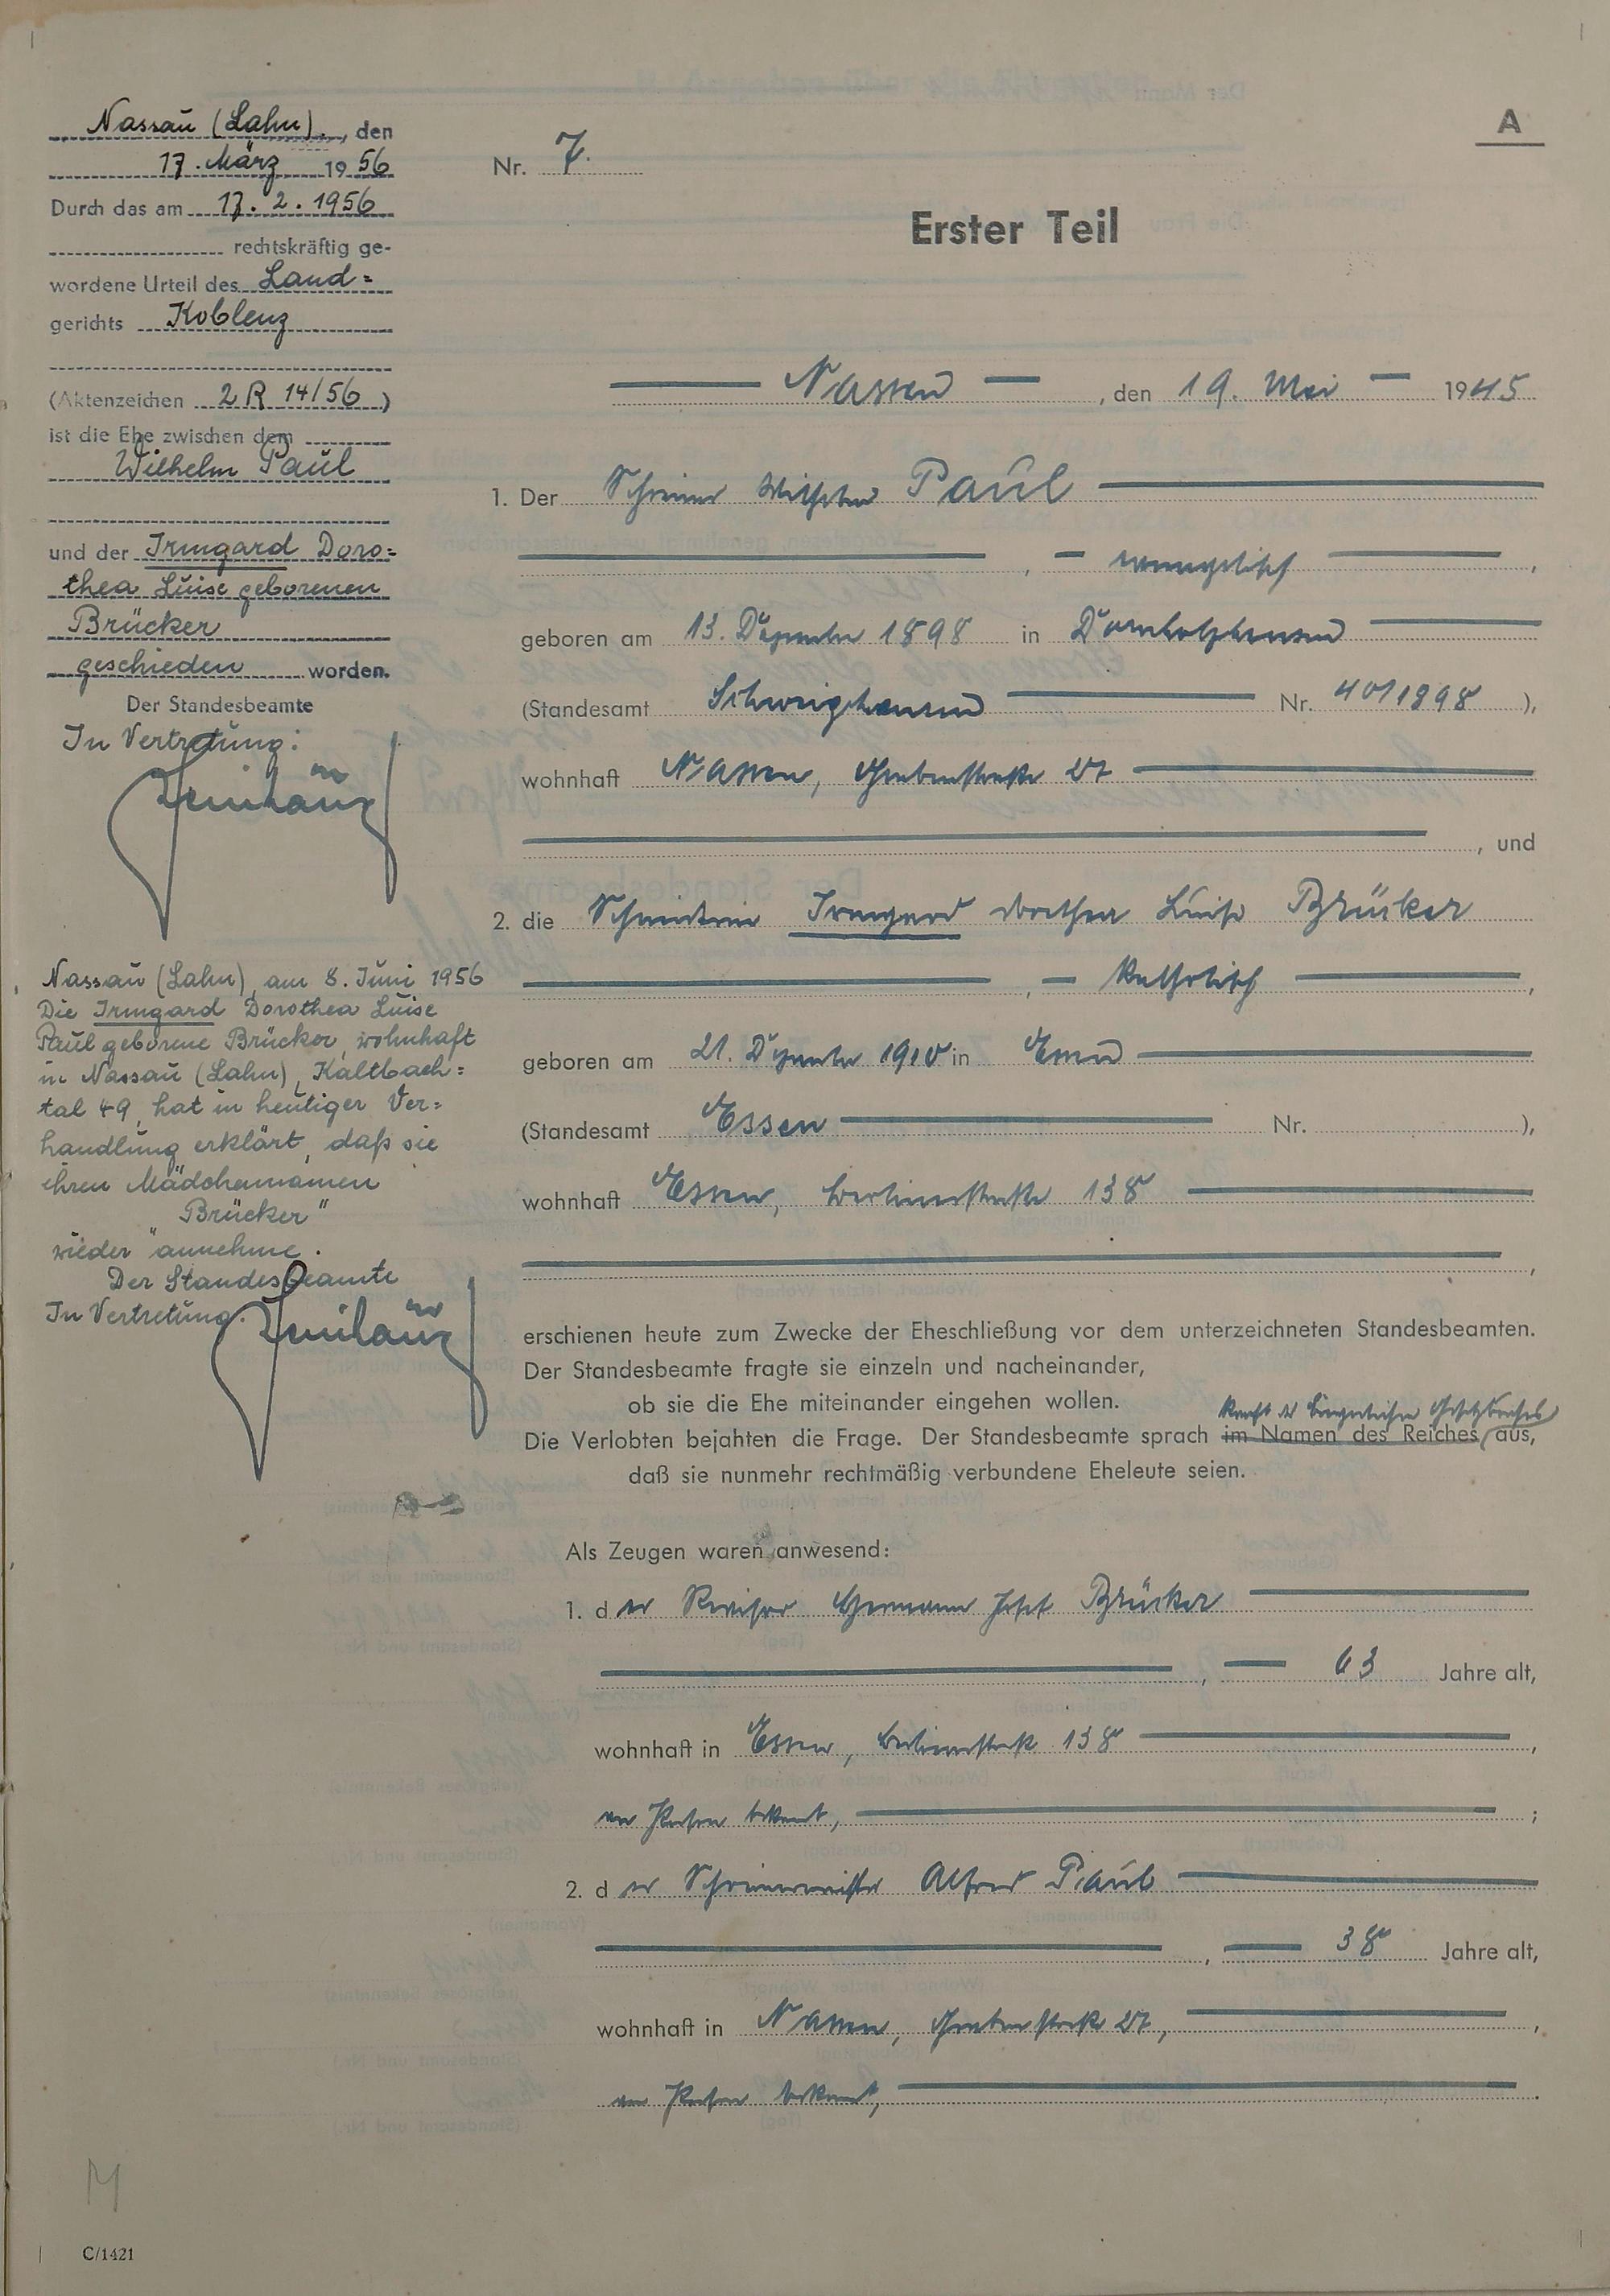 Nassau (Lahn), den
17. März 1956
Durch das am 17. 2. 1956
rechtskräftig ge-
wordene Urteil des Land=
gerichts Koblenz
(Aktenzeichen 2 R 14/56)
ist die Ehe zwischen dem
Wilhelm Paul
und der Irmgard Doro=
thea Luise geborenen
Brücker
geschieden worden.
Der Standesbeamte
In Vertretung:
Nassau (Lahn), am 8. Juni 1956
Die Irmgard Dorothea Luise
Paul geborene Brücker, wohnhaft
in Nassau (Lahn), Kaltbach=
tal 49, hat in heutiger Ver=
handlung erklärt, daß sie
ihren Mädchennamen
"Brücker"
wieder annehme.
Der Standesbeamte
In Vertretung:
C/1421
A
Nr. 7.
Erster Teil
Nassau, den 19. Mai 1945
1. Der Schreiner Wilhelm Paul
, evangelisch,
geboren am 13. Dezember 1898 in Dornholzhausen
(Standesamt Schweighausen Nr. 40/1898),
wohnhaft Nassau, Grabenstraße 27
, und
2. die Irmgard Dorothea Luise Brücker
, katholisch,
geboren am 21. Dezember 1910 in Essen
(Standesamt Essen Nr. ),
wohnhaft Essen, Berlinerstraße 138
,
erschienen heute zum Zwecke der Eheschließung vor dem unterzeichneten Standesbeamten.
Der Standesbeamte fragte sie einzeln und nacheinander,
ob sie die Ehe miteinander eingehen wollen.
kraft des Bürgerlichen Gesetzbuches
Die Verlobten bejahten die Frage. Der Standesbeamte sprach im Namen des Reiches aus,
daß sie nunmehr rechtmäßig verbundene Eheleute seien.
Als Zeugen waren anwesend:
1. der Revisor Hermann Josef Brücker
, 63 Jahre alt,
wohnhaft in Essen, Berlinerstraße 138,
von Person bekannt, ;
2. der Schreinermeister Alfred Paul
, 38 Jahre alt,
wohnhaft in Nassau, Grabenstraße 27,
von Person bekannt, .